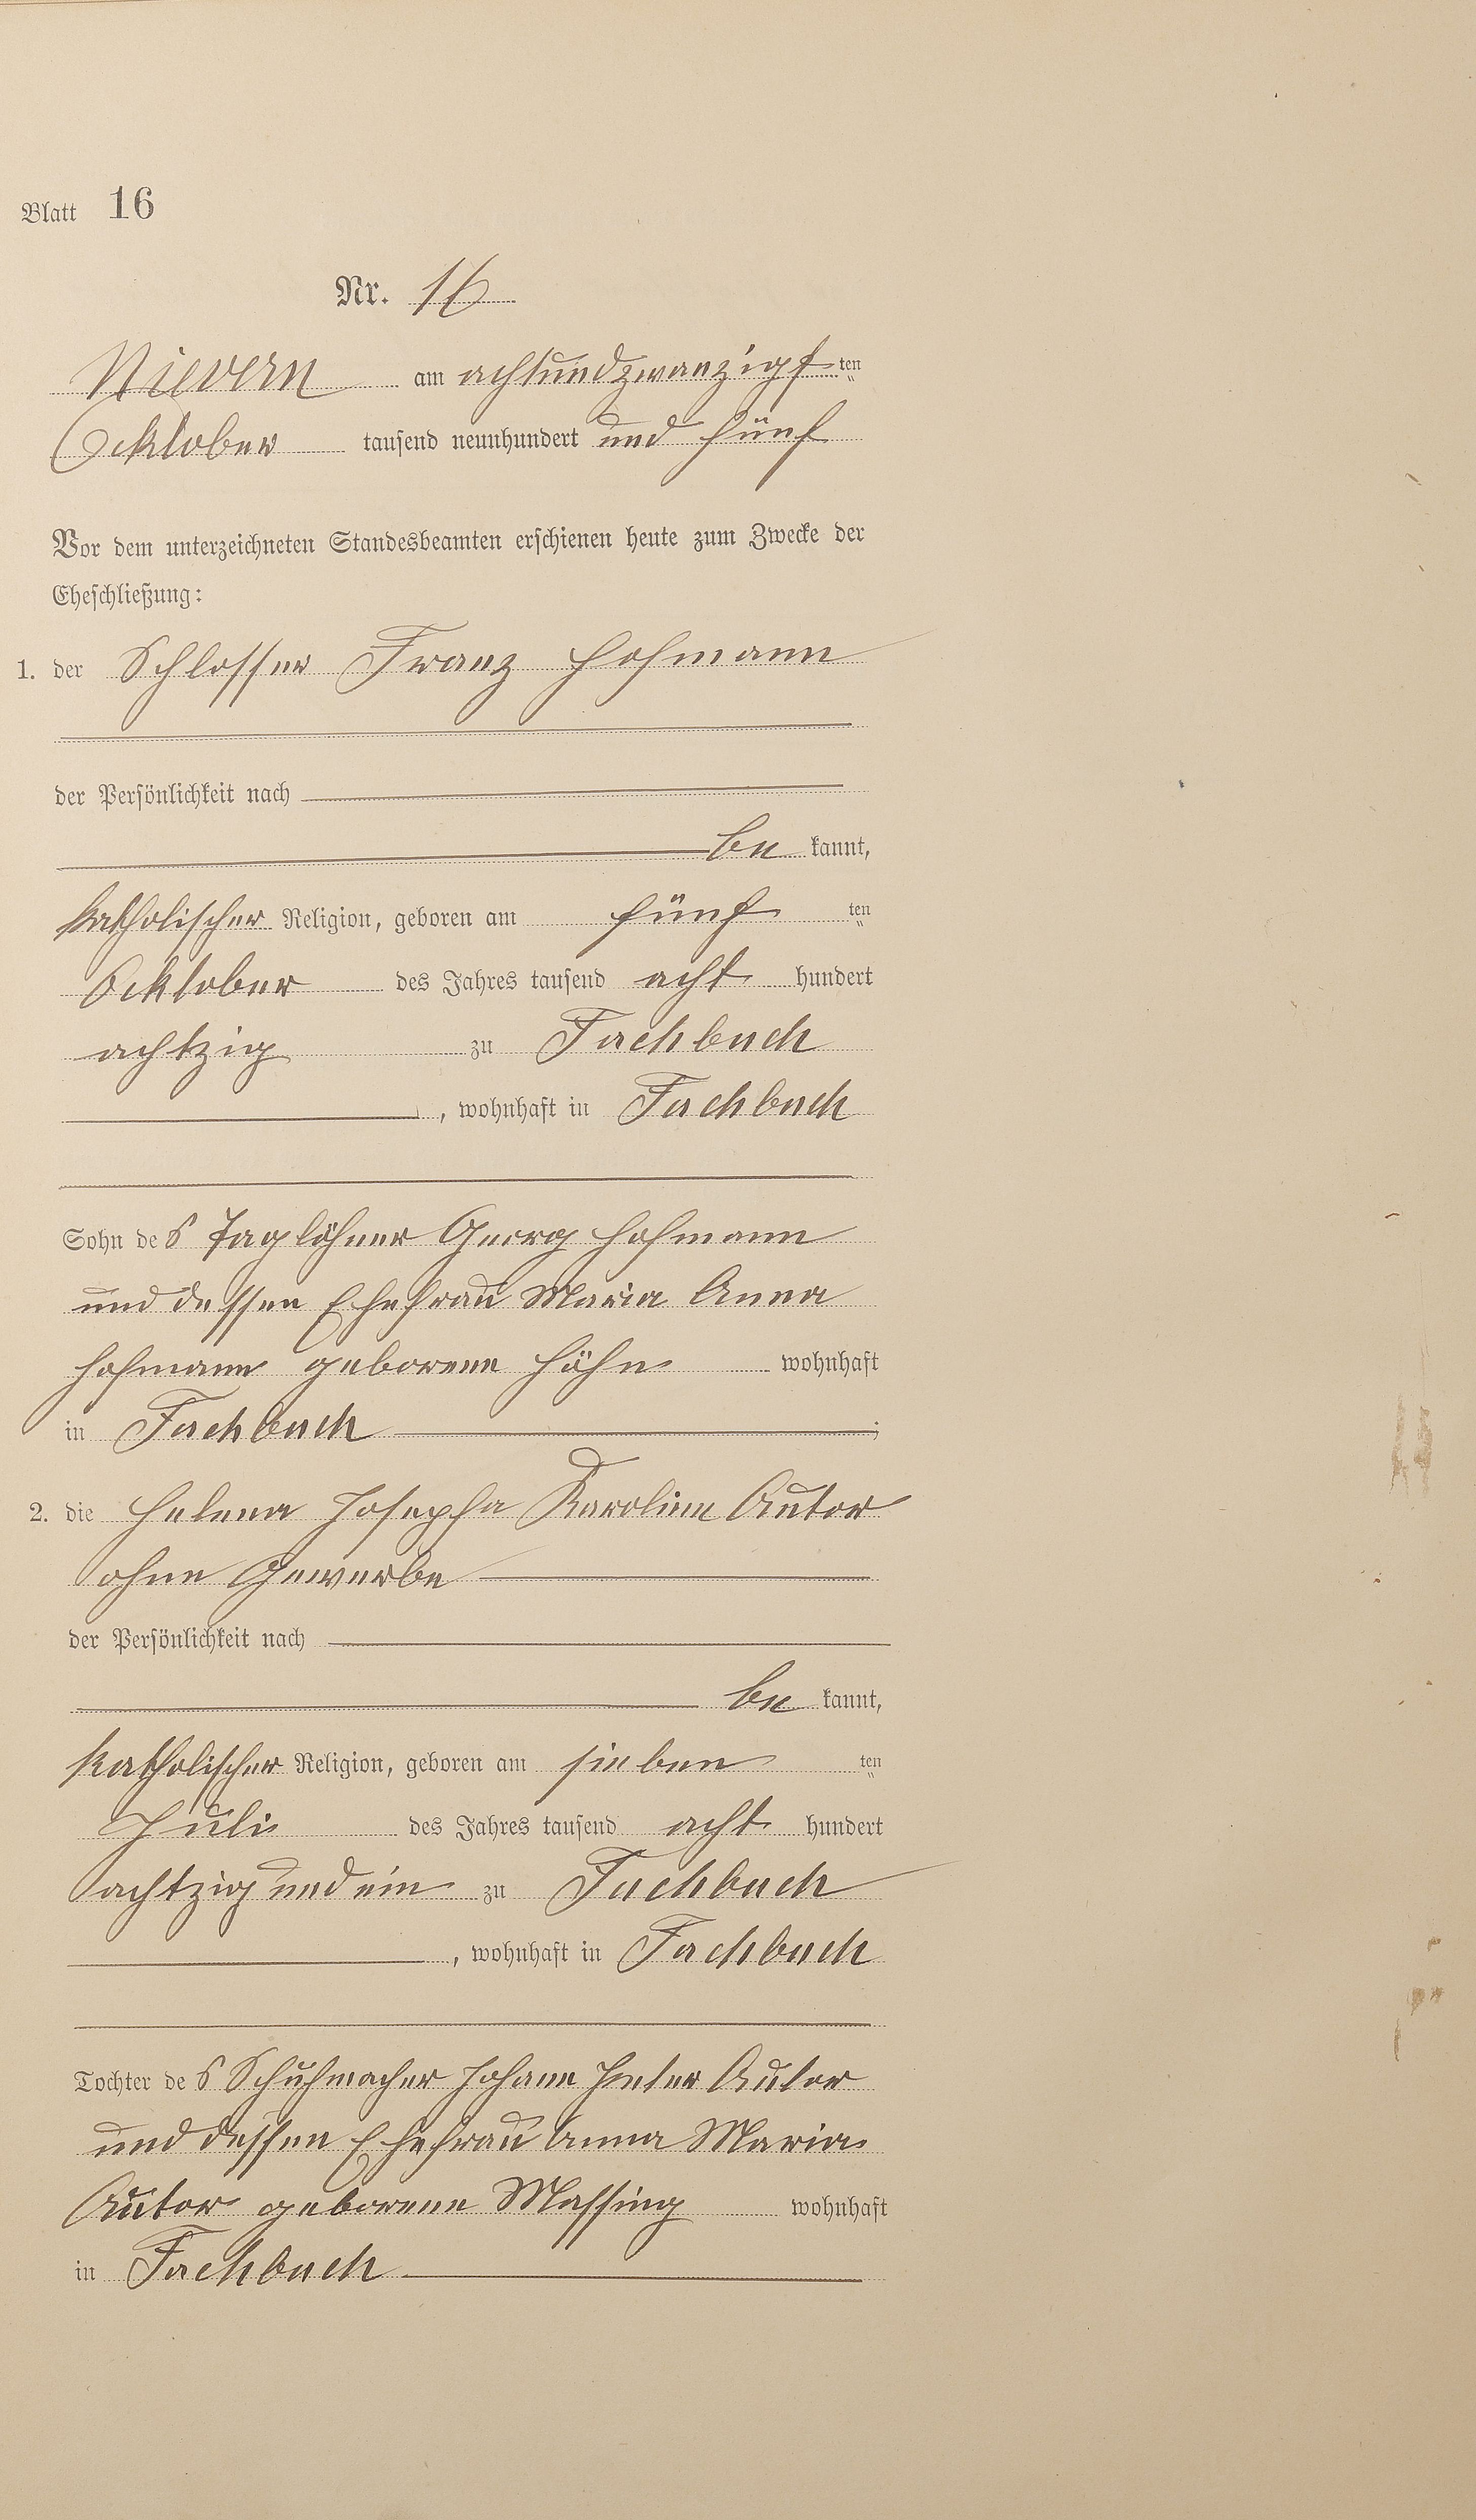 Blatt 16
Nr. 16
Nievern am achtundzwanzigsten
Ocktober tausend neunhundert und fünf
Vor dem unterzeichneten Standesbeamten erschienen heute zum Zwecke der
Eheschließung:
1. der Schlosser Franz Hofmann
der Persönlichkeit nach
be kannt,
katholischer Religion, geboren am fünf ten
Ocktober des Jahres tausend acht hundert
achtzig zu Fachbach
, wohnhaft in Fachbach
Sohn des Taglöhner Georg Hofmann
und dessen Ehefrau Maria Anna
Hofmann geborene Höhn wohnhaft
in Fachbach ;
2. die Helena Josepha Karoline Autor
ohne Gewerbe
der Persönlichkeit nach
be kannt,
katholischer Religion, geboren am sieben ten
Juli des Jahres tausend acht hundert
achtzig und ein zu Fachbach
, wohnhaft in Fachbach
Tochter des Schuhmacher Johann Peter Autor
und dessen Ehefrau Anna Maria
Autor geborene Massing wohnhaft
in Fachbach